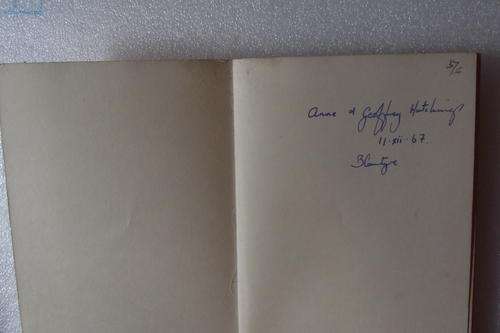 57/6
Anne & Geoffrey Hutchings
11·xii·67.
Blantyre